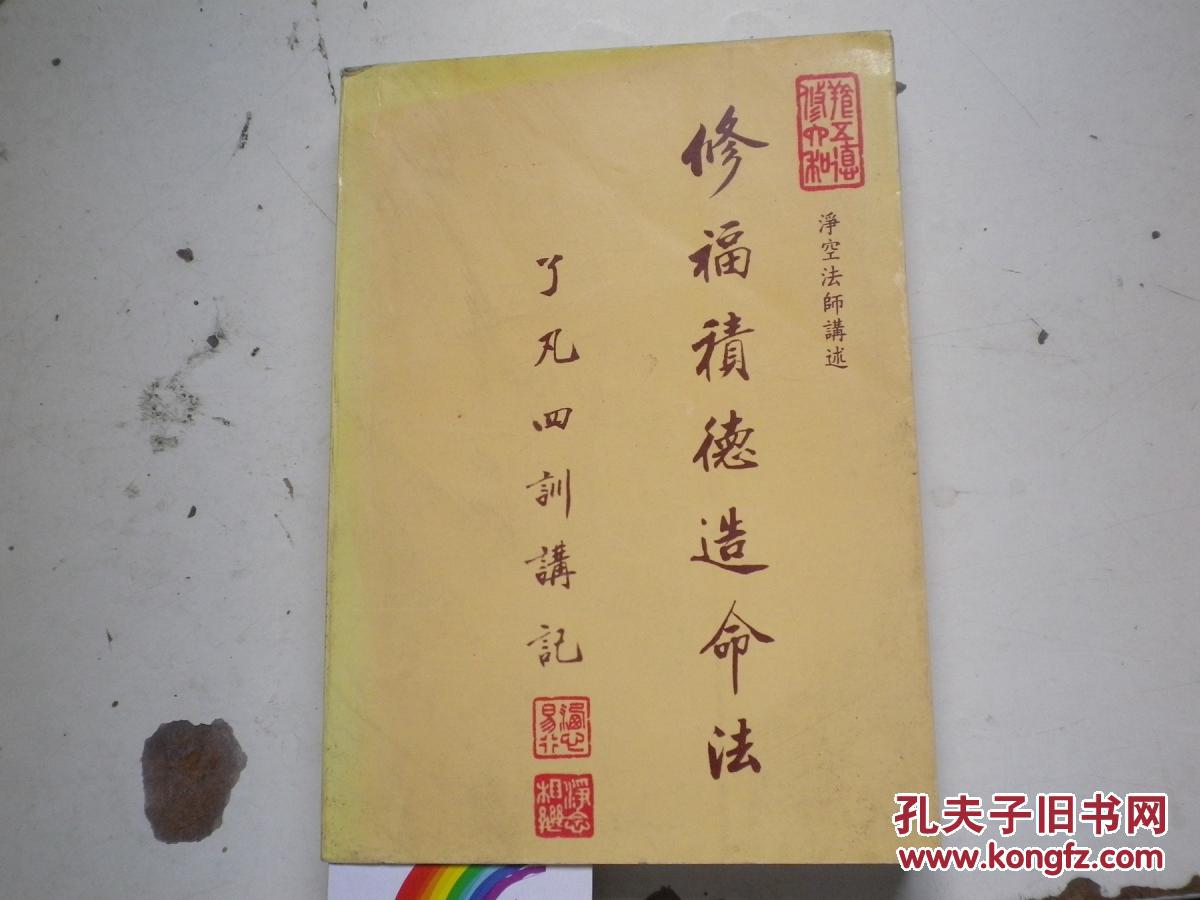 淨空法師講述
修福積德造命法
了凡四訓講記
淨念相繼
孔夫子旧书网
www.kongfz.com